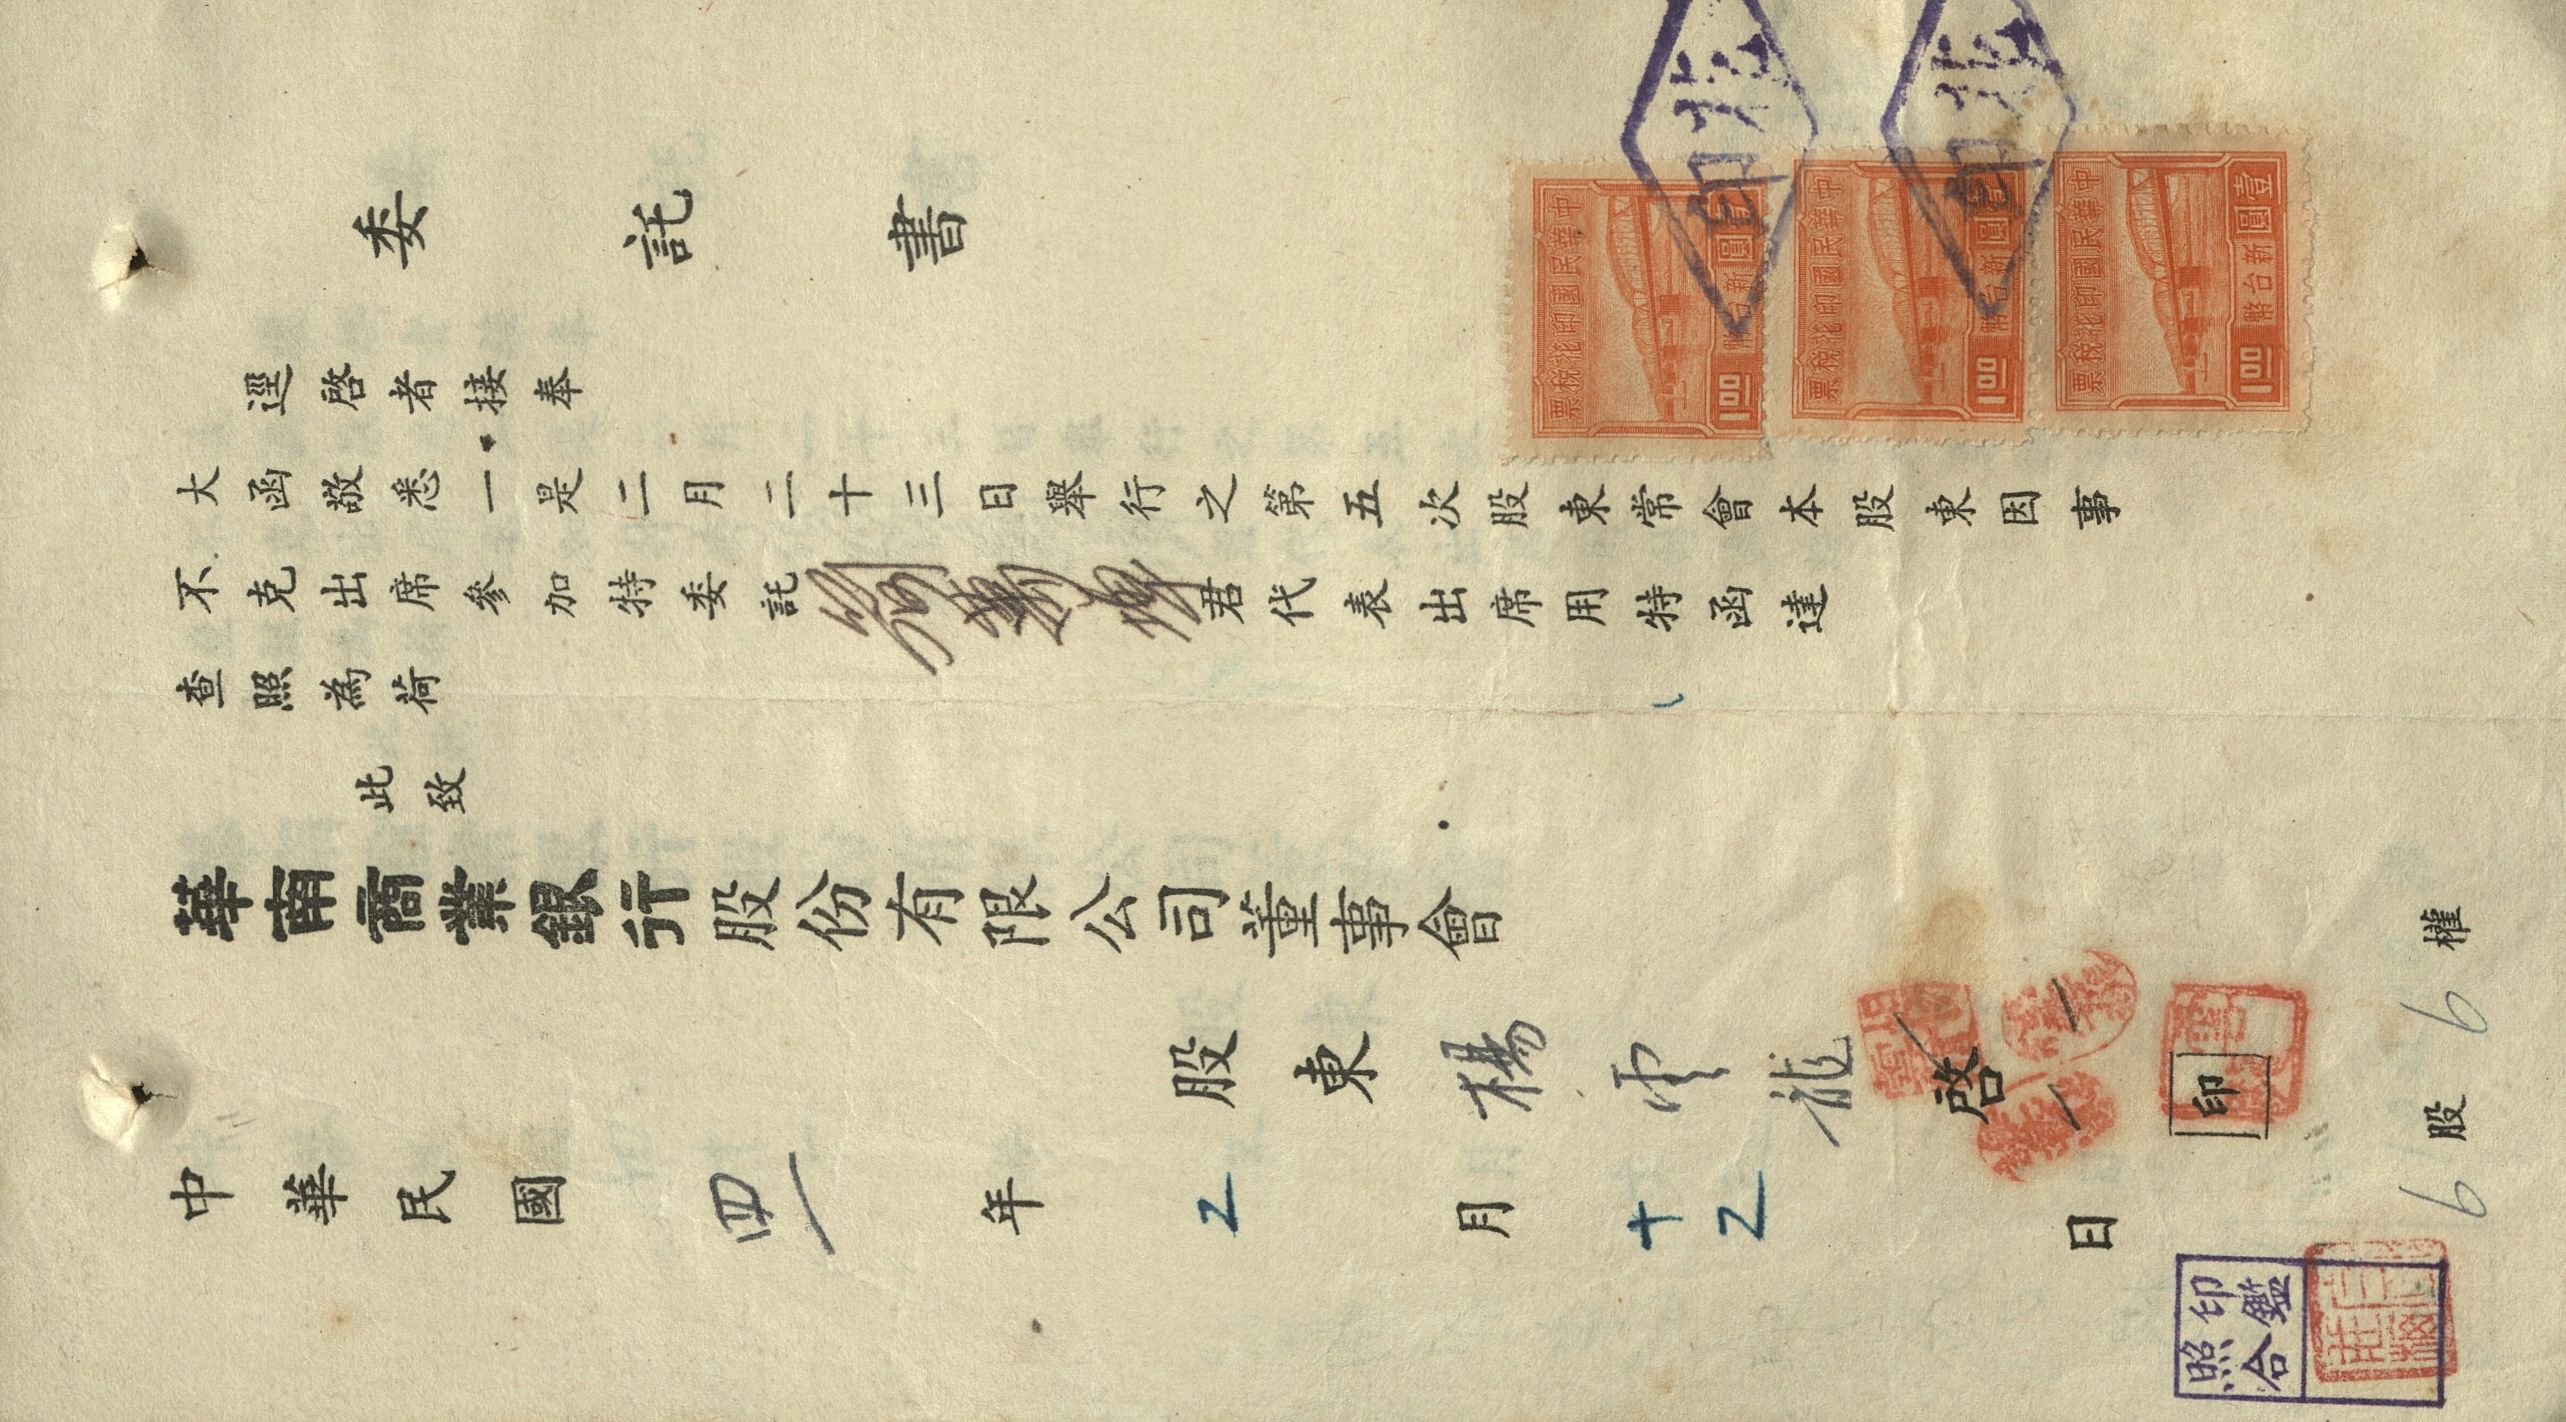 委託書
逕啓者接奉
大函敬悉一是二月二十三日舉行之第五次股東常會本股東因事
不克出席參加特委託
君代表出席用特函達
查照為荷
此致
華南商業銀行股份有限公司董事會
股東 楊雲龍 啓 印
中華民國四一年2月十2日
6股6權
中華民國印花稅票
壹圓
新台幣
1.00
中華民國印花稅票
壹圓
新台幣
1.00
中華民國印花稅票
壹圓
新台幣
1.00
北印
北印
印鑑
照合